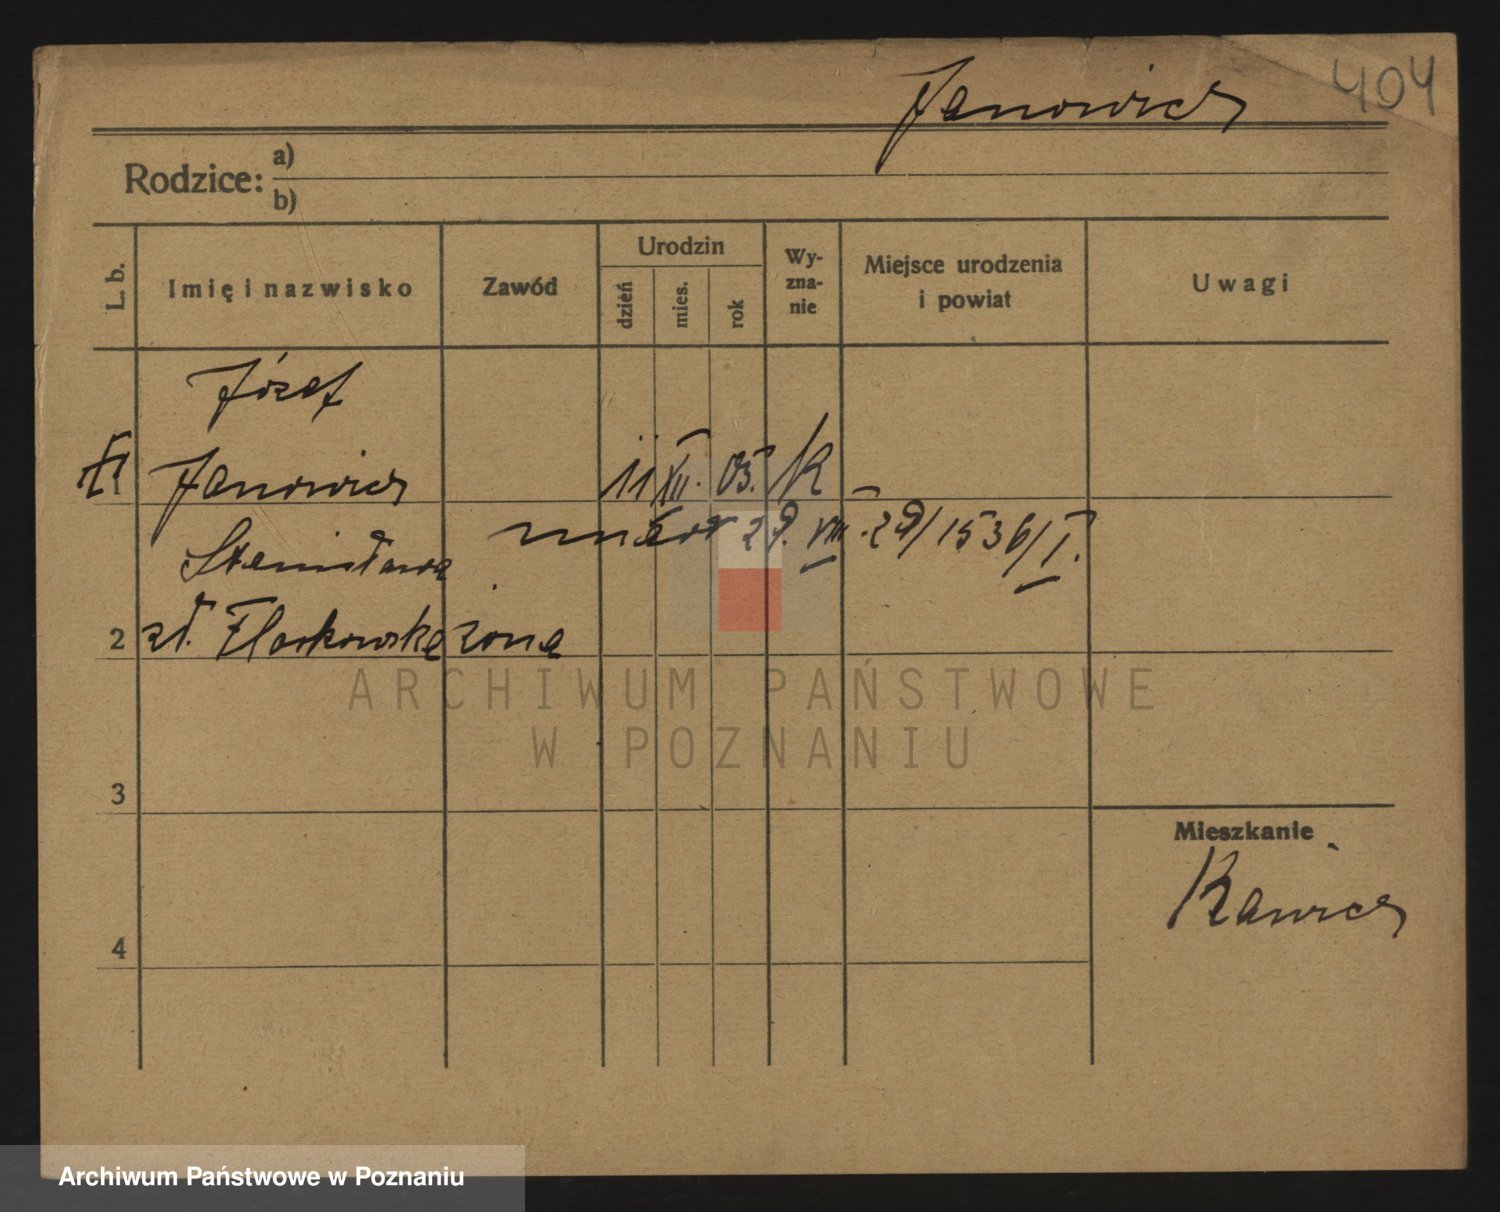 Janowicz 404
Rodzice: a)
b)
L. b. Imię i nazwisko Zawód Urodzin dzień mies. rok Wy-zna-nie Miejsce urodzenia i powiat Uwagi
Józef
1 Janowicz 11 XII. 05. K
Stanisława 29. VIII. 29/1536/I.
2 zd. żona
3
Mieszkanie
Rawicz
4
ARCHIWUM PAŃSTWOWE
W POZNANIU
Archiwum Państwowe w Poznaniu